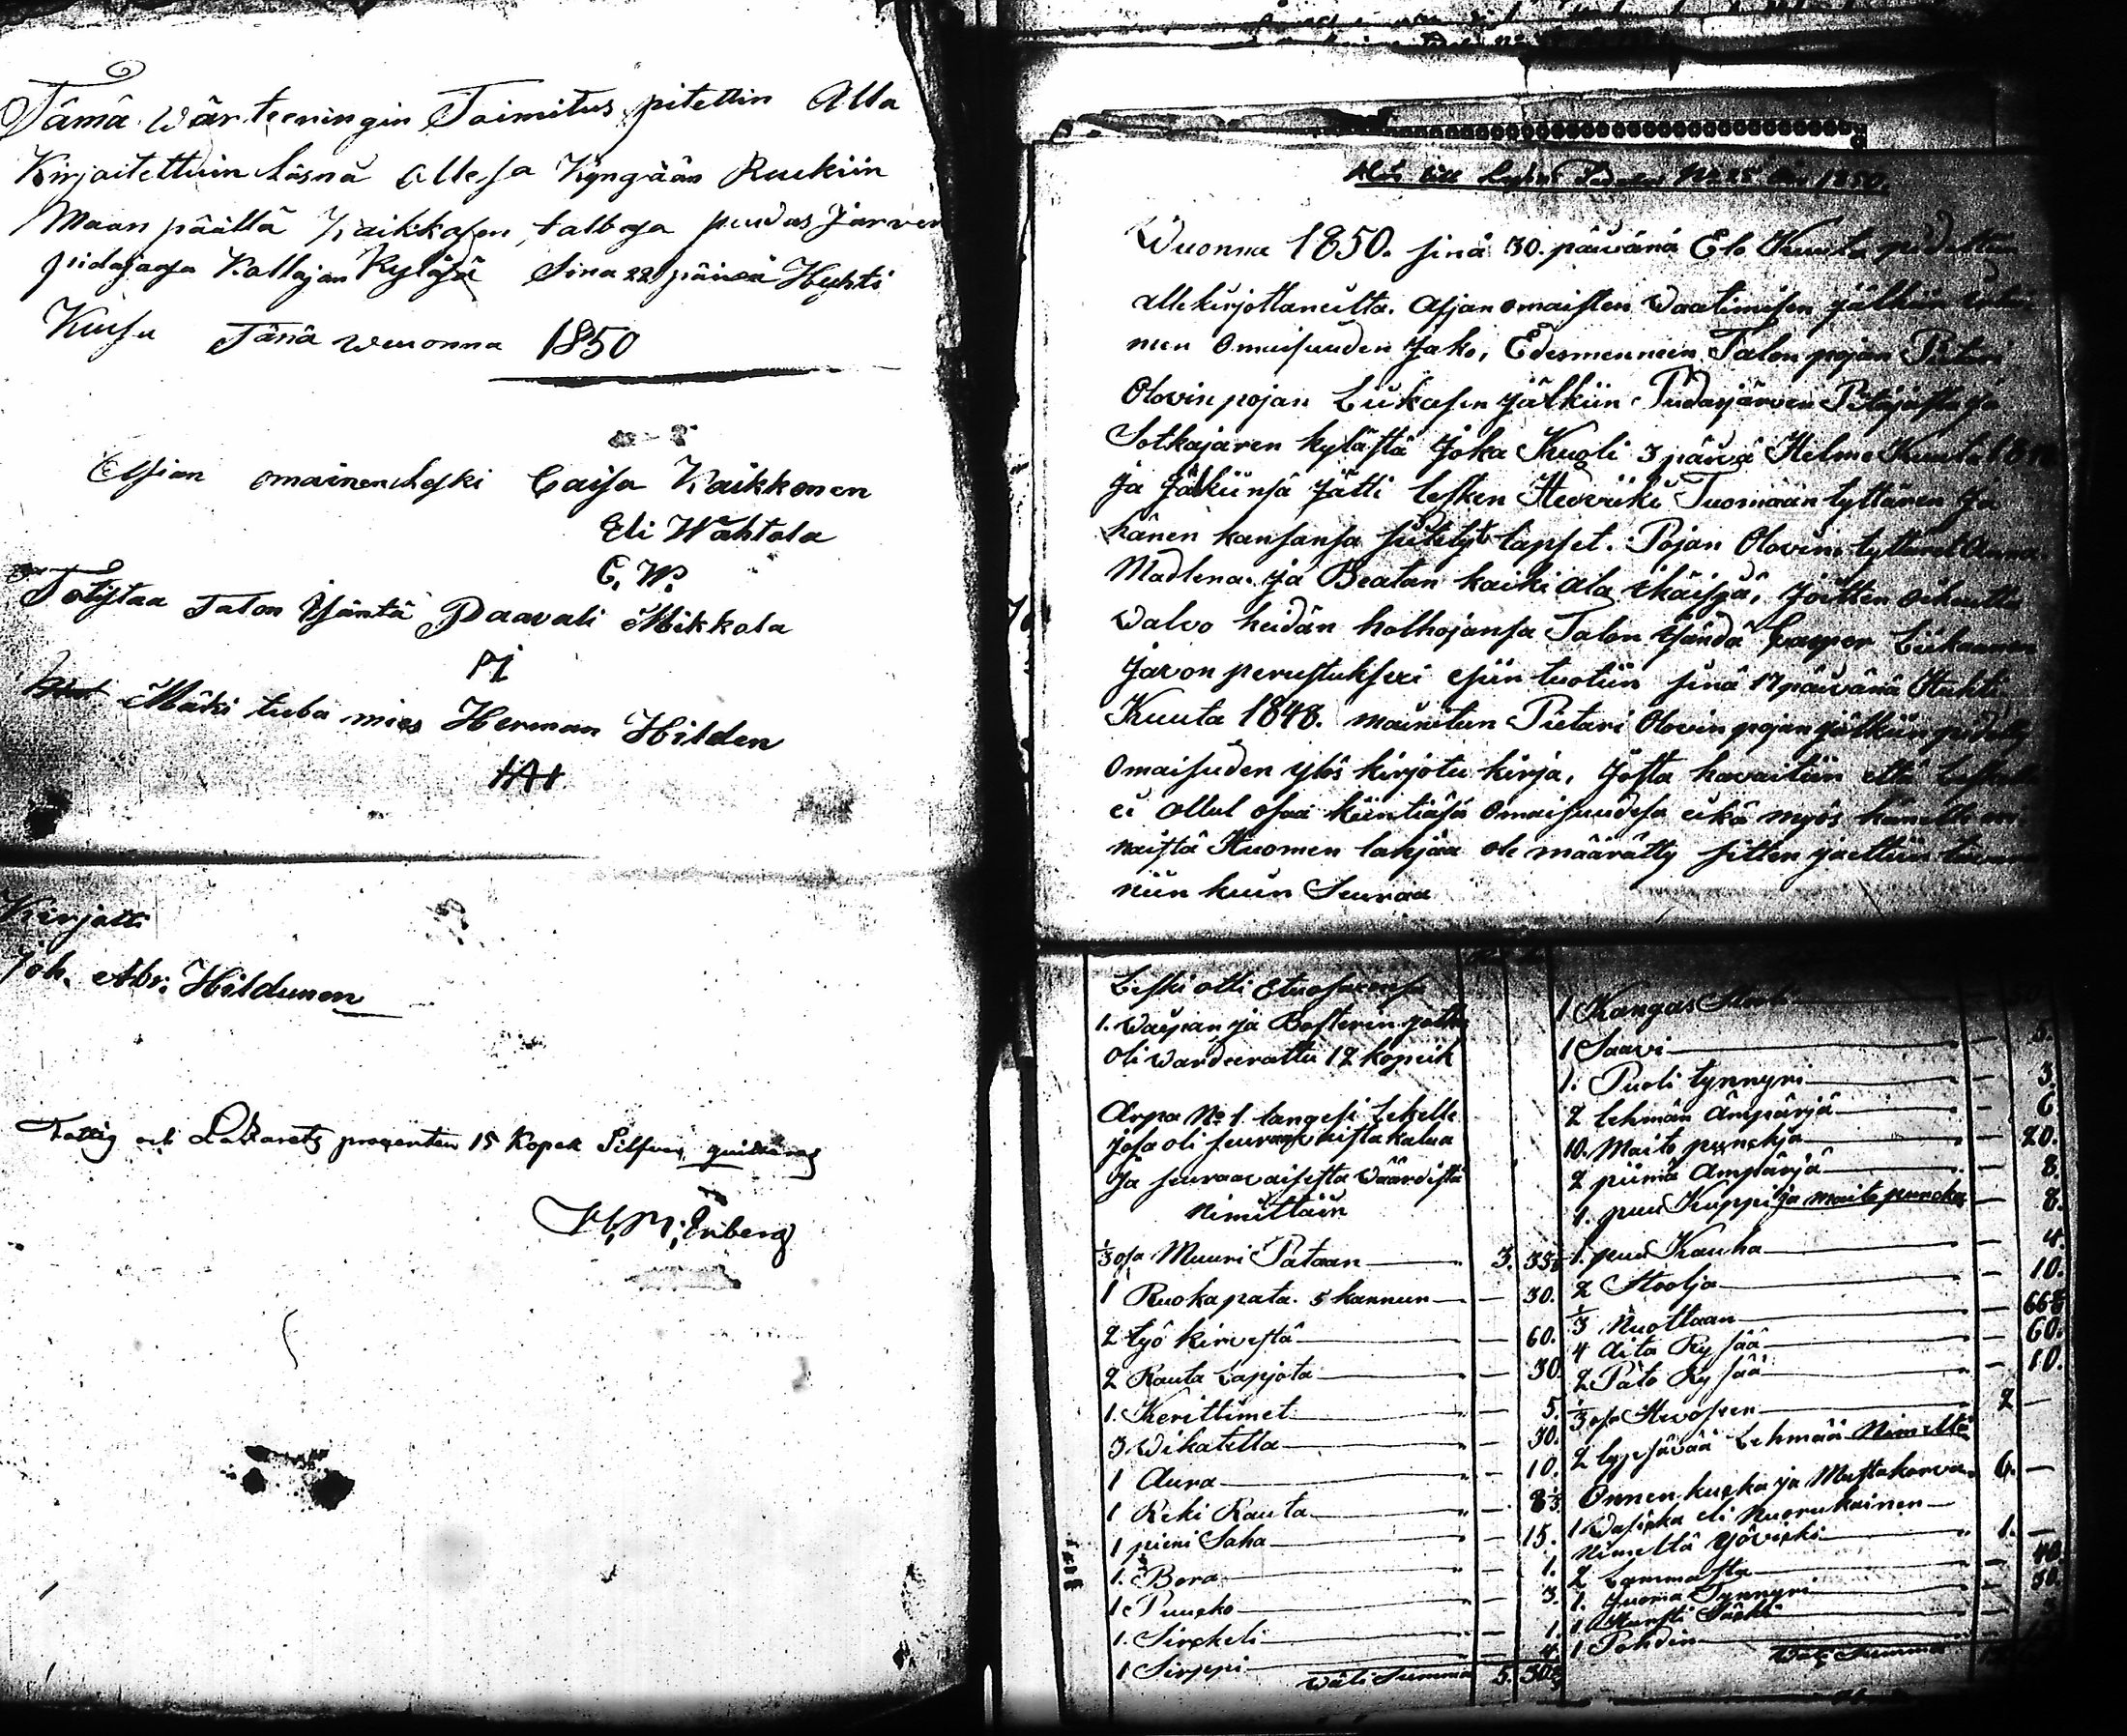 Tämä wärteeringin Toimitus pitettin Alla
Kirjoitettuin läsnä Ollesa Kyngään Ruukiin
Maan päällä Kaikkosen talosa puudas Järven
pidäjäsa Kollajan Kyläsä Sinä 22 päivä Huhti
Kuusa Tänä wuonna 1850
Asian omainen leski Caisa Kaikkonen
Eli Wähtala
C. W.
Totistaa Talon Isäntä Paavali Mikkola
Mäki tuba mies Herman Hilden
Kirjotti
Joh. Abr. Hildunen
Fattig och Lazaretz procenten 15 Kopek Silfver
Wuonna 1850. sinä 30. päivänä Elo Kuuta pidettiin
allekirjottaneilta. Asjanomaisten Vaatimisen jälkiin
nen Omaisuuden Jako, Edesmenneen Talon pojan Pietari
Olovin pojan Liikasen jälkiin Pudasjärven Pitäjästä ja
Sotkajären kylästä Joka Kuoli 3 päivä Helme Kuuta
ja Jälkiinsä Jätti lesken Hedviiki Tuomaan tyttären ja
hänen kansansa siitetyt lapset. Pojan Olovin, tytteret Anna
Madlena. ja Beatan kaiki ala ikäisiä, Joitten oikeutta
Valvo heidän holhojansa Talon Isändä Casper Liikanen
Javon perustukseri esiin tuotiin sinä 17 päivänä Huhti
Kuuta 1848. mainitun Pietari Olovin pojan jälkiin pidetty
Omaisuden ylös kirjotu kirja, Josta havaitiin että Leskellä
ei ollut osaa kiintiäsä Omaisuudesa eikä myös hänelle
naistä Huomen lahjaa ole määrätty sitten jaettiin tavara
niin kuin Seuraa
Leski otti Etuosaxensa
1. Vaipan ja Bolsterin jotka
Oli Varderattu 12 kopeik
Arpa No 1. langesi Lekelle
josa oli seuraavaista kalua
Ja seuraavaisesta Väärdistä
Nimittäin
1/3 osa Muuri Pataan 3. 33 1/3
1 Ruoka pata. 5 kannun — 30.
2 työ kirvestä — 60.
2 Rauta Lapjota — 30.
1. Kerittimet — 5.
3 Wikatetta — 30.
1 Aura — 10.
1 Reki Rauta — 8 1/3
1 pieni Saha — 15.
1. Bora — 1.
1 Puuko — 3.
1. Sirckeli — 1.
1 Sirppi — 4.
Väli Summa 5.
1 Kangas Stooli
1 Saavi — 5.
1. Puoli tynnyri — 3.
2 lehmän Ämpärjä — 6.
10. Maito punckja — 20.
2 piimä Ämpärjä — 8.
1. puu Kuppi ja maito puncka — 8.
1. puu Kauha — 4.
2 Stoolja — 10.
1/3 Nuottaan — 66 2/3
4 Aita Rysää — 60.
2 Pato Rysää — 10.
1/3 osa Hevoseen 2 —
2 lypsävää Lehmää Nimeltä
Onnen kucka ja Mustakorva 6. —
1 Vasicka eli Nuorukainen
nimeltä Yövicki 1. —
2 Lammasta — 40.
1. Juoma Tynnyri — 30.
1 Pohdin
Väli Summa